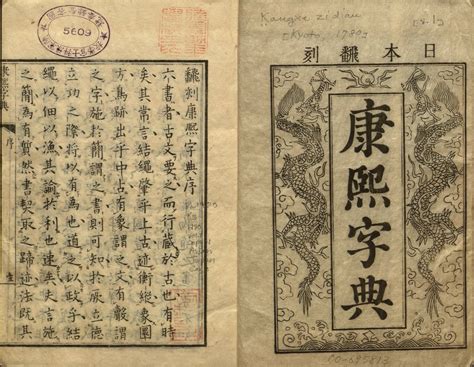 日本飜刻
康熙字典
5609
飜刻康熙字典序
六書者古文要之而行藏於古也有時
矣其常言結繩肇乎上古迹衡縱象圖
方爲跡出乎中古有像謂之文有謂
之字施於簡謂之書則可知於厥立德
立功之際將以有爲也道之以政乎結
繩以佃以漁其諭於利也速矣史言施
之簡爲有然書契取之歸迹法既其
序